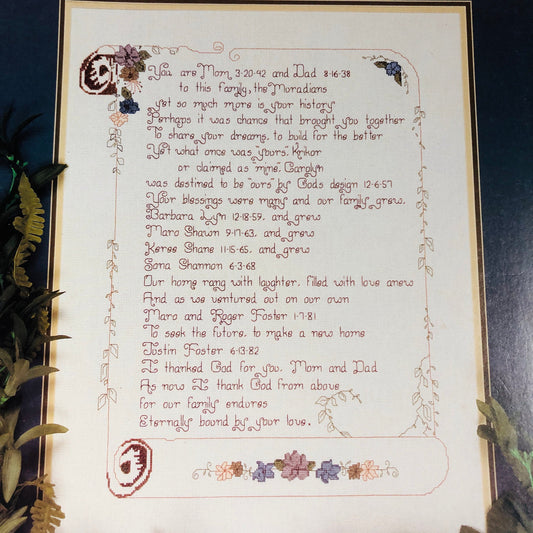 You are Mom, 3·20·42 and Dad 8·16·38
to this family, the Moradians
yet so much more is your history
Perhaps it was chance that brought you together
To share your dreams, to build for the better
Yet what once was "yours", Krikor
or claimed as "mine", Carolyn
was destined to be "ours" by Gods design 12·6·57
Your blessings were many and our family grew,
Barbara Lyn 12·18·59, and grew
Maro Shawn 9·17·63, and grew
Keree Shane 11·15·65, and grew
Sona Shannon 6·3·68
Our home rang with laughter, filled with love anew
And as we ventured out on our own
Maro and Roger Foster 1·7·81
To seek the future, to make a new home
Justin Foster 6·13·82
I thanked God for you, Mom and Dad
As now I thank God from above
for our family endures
Eternally bound by your love.